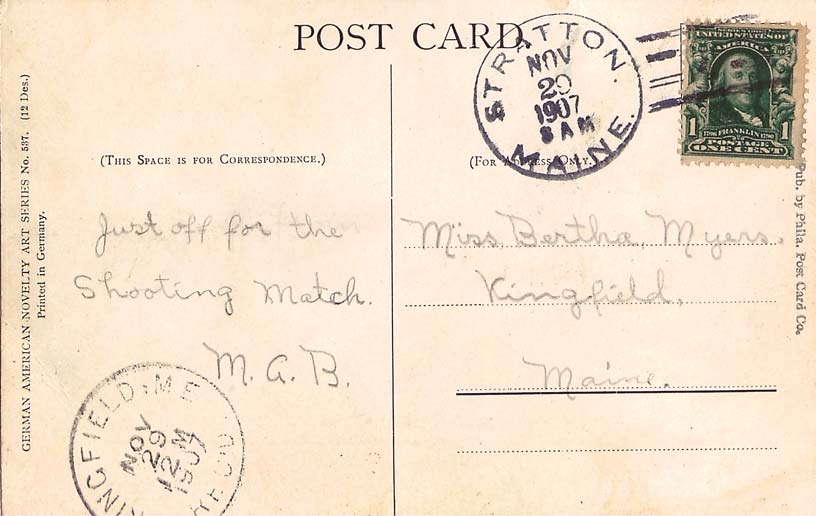 POST CARD.
STRATTON.
NOV
29
1907
8 AM
MAINE.
SERIES 1902
UNITED STATES OF
AMERICA
1 1706 FRANKLIN 1790 1
POSTAGE
ONE CENT
(THIS SPACE IS FOR CORRESPONDENCE.)
(FOR ADDRESS ONLY.)
Just off for the
Shooting Match.
M. A. B.
Miss Bertha Myers.
Kingfield,
Maine.
KINGFIELD, ME
NOV
29
12 M
1907
REC'D
GERMAN AMERICAN NOVELTY ART SERIES No. 537. (12 Des.)
Printed in Germany.
Pub. by Phila. Post Card Co.